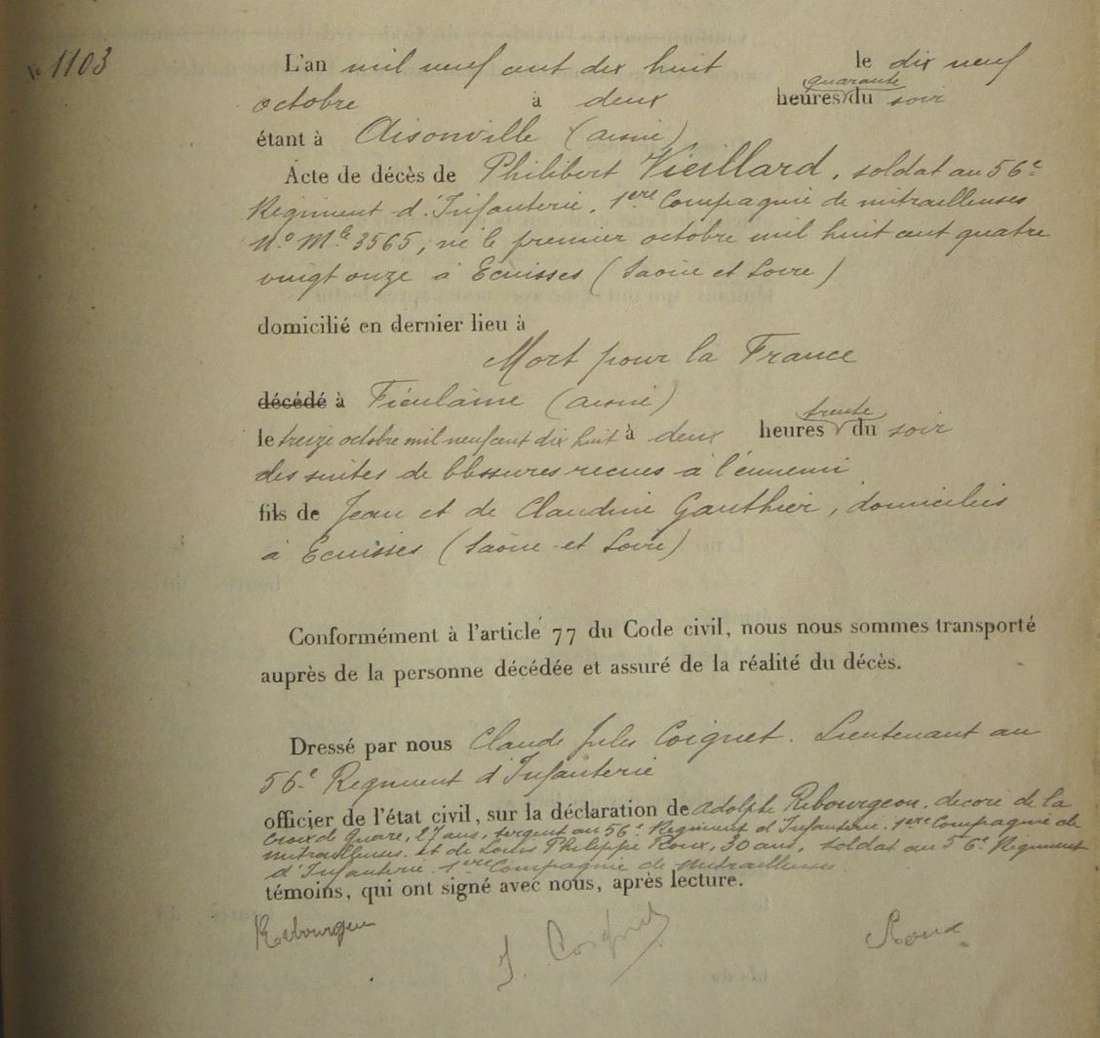 No 1103
L'an mil neuf cent dix huit le dix neuf
quarante
octobre à deux heures du soir
étant à Aisonville (aisne)
Acte de décès de Philibert Vieillard, soldat au 56e
Régiment d'Infanterie, 1ere Compagnie de mitrailleuses
No Mle 3565, né le premier octobre mil huit cent quatre
vingt onze à Ecuisses (Saône et Loire)
domicilié en dernier lieu à
Mort pour la France
décédé à Fieulaine (aisne)
trente
le treize octobre mil neuf cent dix huit à deux heures du soir
des suites de blessures recues à l'ennemi
fils de Jean et de Claudine Gauthier, domiciliés
à Ecuisses (Saône et Loire)
Conformément à l'article 77 du Code civil, nous nous sommes transporté
auprès de la personne décédée et assuré de la réalité du décès.
Dressé par nous Claude Jules Coignet. Lieutenant au
56e Régiment d'Infanterie
officier de l'état civil, sur la déclaration de Adolphe Rebourgeon, décoré de la
Croix de Guerre, 27 ans, sergent au 56e Régiment d'Infanterie, 1ere Compagnie de
mitrailleuses et de Louis Philippe Roux, 30 ans, soldat au 56e Régiment
d'Infanterie 1ere Compagnie de mitrailleuses
témoins, qui ont signé avec nous, après lecture.
Rebourgeon J. Coignet Roux